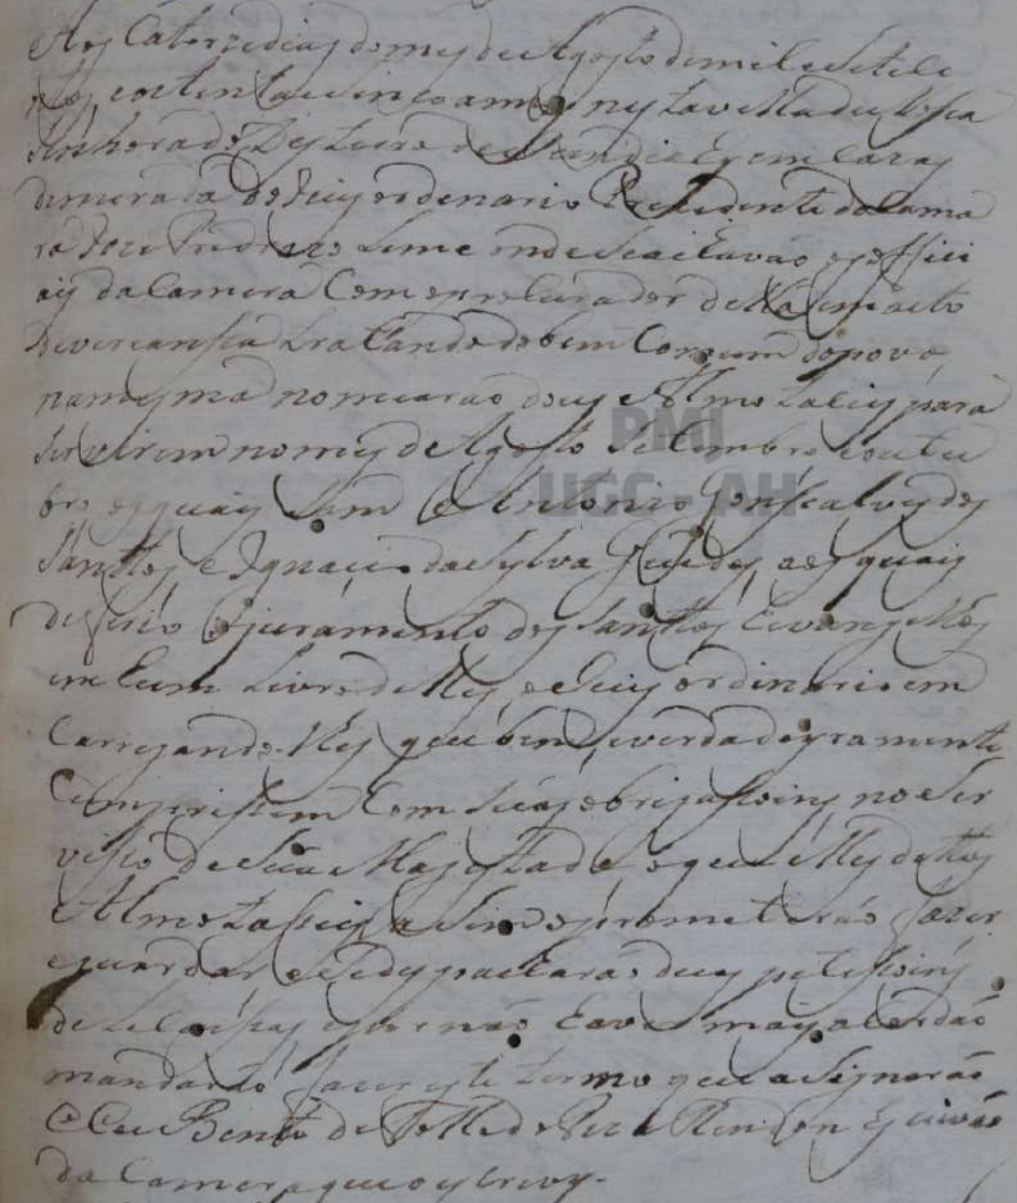 Aos Catorze dias do mes de Agosto de mil e sete se
ntos, e oitenta e sinco annos nesta villa de Nossa
Senhora do Desterro de Jundiahy em Cazas
de morada do Juis ordenario Prezidente da Cama
ra Joze Pedrozo Leme onde se achavão os offici
ais da Camera Com o procurador della em acto
de vereansa tratando do bem Comum do povo,
na mesma nomearão dous Almotaceis para
servirem no mes de Agosto Setembro e outu
bro os quais Sam Antonio Gonsalves dos
Santtos, e Ignacio da Sylva Guedes, aos quais
deferio o juramento dos Santtos Evangelhos
em hum Livro delles, o Juis ordinario em
Carregando-lhes que bem, e verdadeyramente
Cumprissem Com suas obrigassoins no ser
visso de Sua Magestade o que elles dittos
Almotasseis asim o prometerão fazer
e guardar e se despacharão duas petissoins
de e por não haver mais acordão
mandarão fazer este termo que asignarão
e Eu Bento de Tolledo Rendon Escrivão
da Camera que o escrevy.
PMJ
UGC - AH